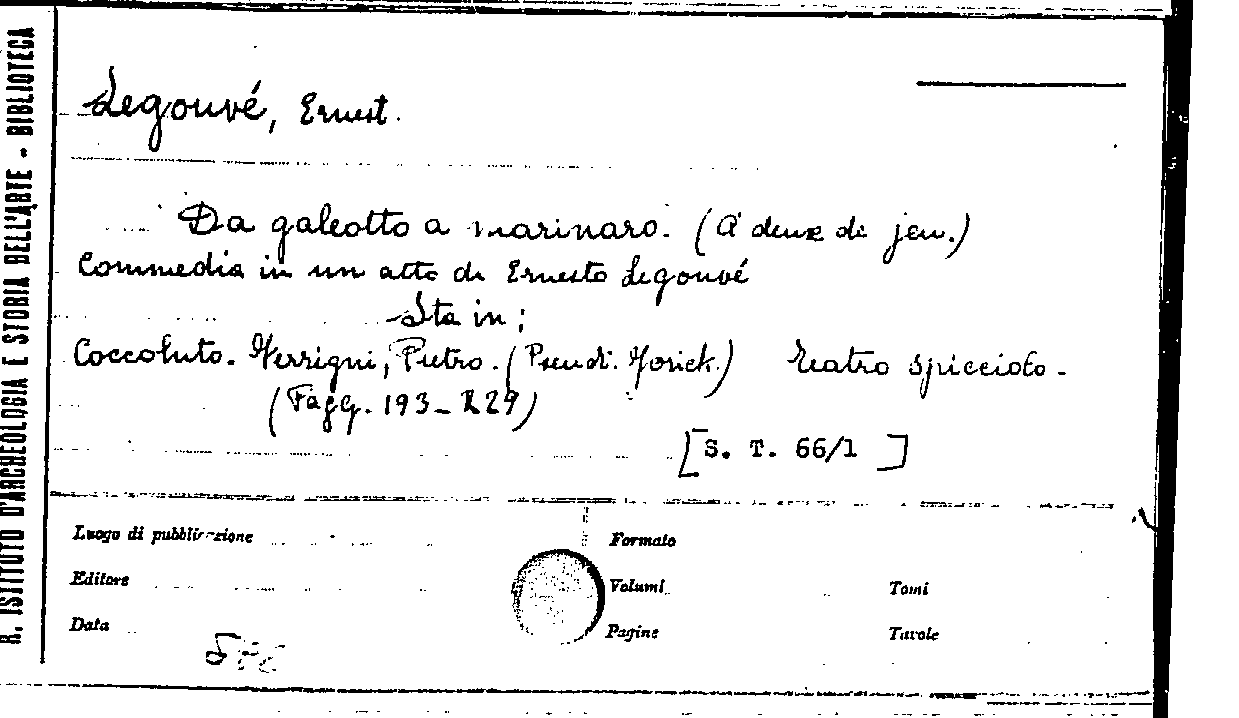 R. ISTITUTO D'ARCHEOLOGIA E STORIA DELL'ARTE - BIBLIOTECA
Legouvé, Ernest.
Da galeotto a marinaro. (A deux de jeu.)
Commedia in un atto di Ernesto Legouvé
Sta in:
Coccoluto. Ferrigni, Pietro. (Pseud: Yorick.) Teatro spicciolo.
(Pagg. 193-229)
[S. T. 66/1]
Luogo di pubblicazione
Formato
Editore
Volumi
Tomi
Data
Pagine
Tavole